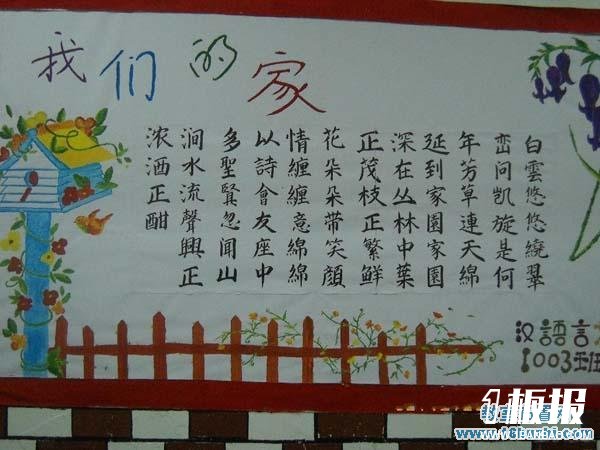 我们的家
白雲悠悠繞翠
峦问凯旋是何
年芳草連天綿
延到家園家園
深在丛林中葉
正茂枝正繁鲜
花朵朵带笑顔
情缠缠意綿綿
以詩會友座中
多聖賢忽闻山
涧水流聲興正
浓酒正酣
汉語言
1003班
板报